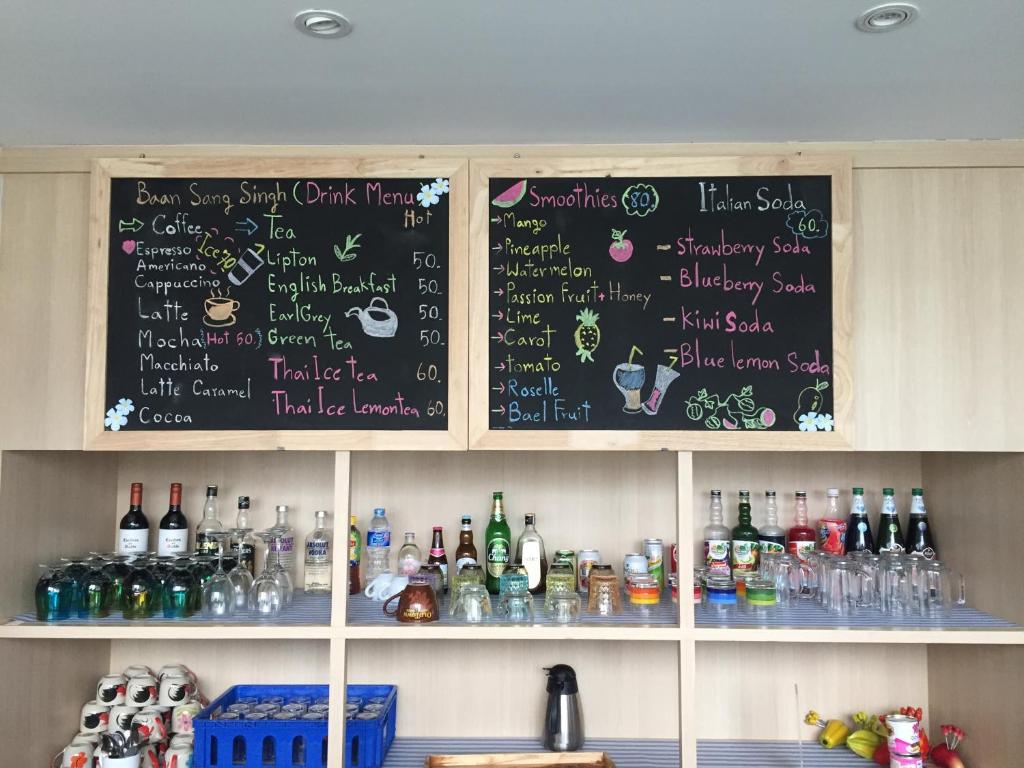 Baan Sang Singh (Drink Menu
Hot
Coffee
Espresso
Americano
Cappuccino
Ice 70
Latte
Mocha Hot 50.
Macchiato
Latte Caramel
Cocoa
Tea
Lipton 50.
English Breakfast 50.
Earl Grey 50.
Green tea 50.
Thai Ice tea 60.
Thai Ice Lemontea 60.
Smoothies 80.
Mango
Pineapple
Watermelon
Passion Fruit + Honey
Lime
Carot
tomato
Roselle
Bael Fruit
Italian Soda
60.
Strawberry Soda
Blueberry Soda
Kiwi Soda
Blue lemon Soda
ABSOLUT
VODKA
Chang